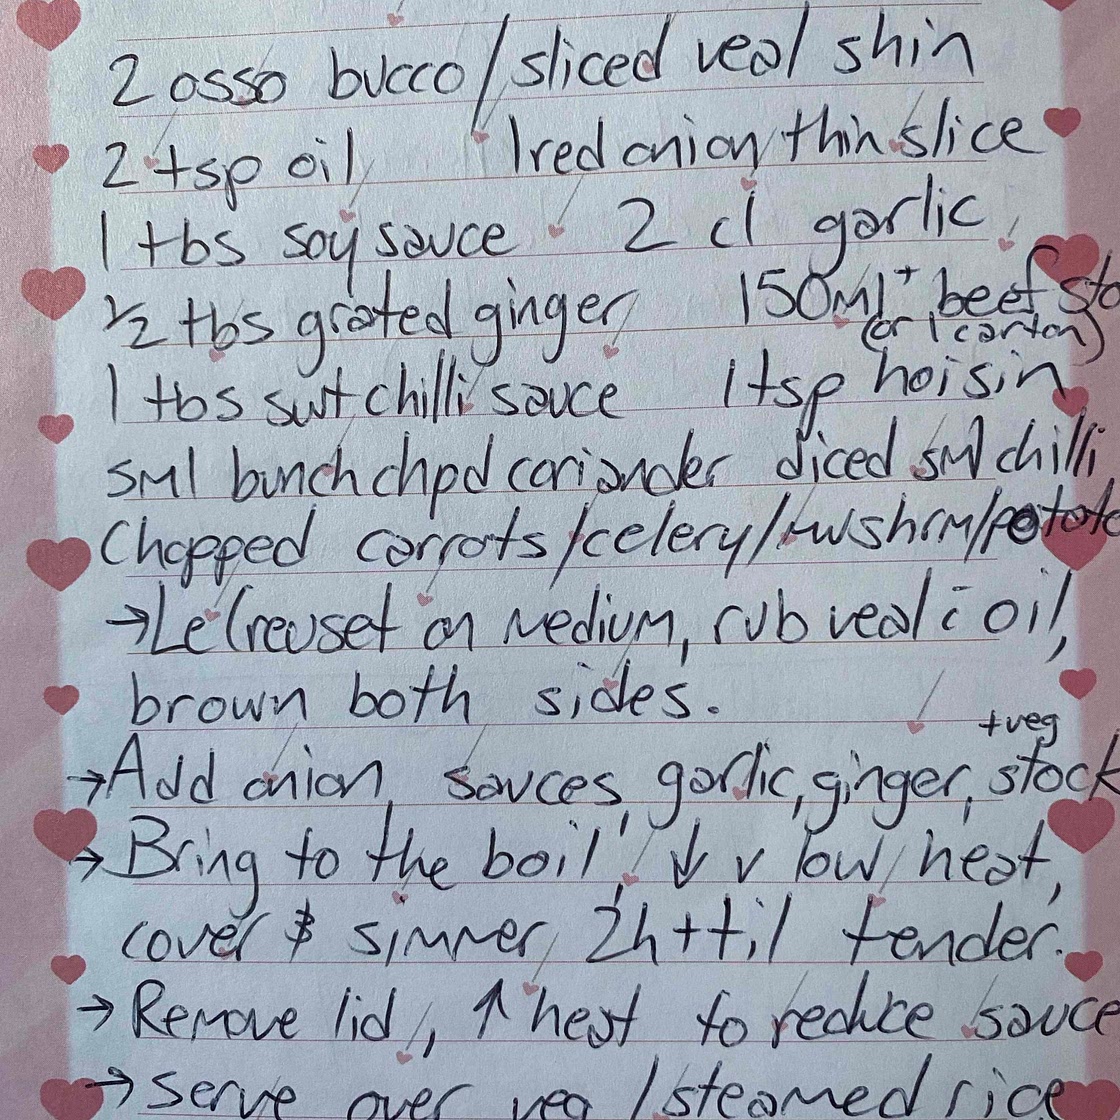 2 osso bucco/sliced veal shin
2 tsp oil 1 red onion thin slice
1 tbs soy sauce 2 cl garlic
½ tbs grated ginger 150ml+ beef sto
(or 1 carton)
1 tbs swt chilli sauce 1 tsp hoisin
sml bunch chpd coriander diced sml chilli
Chopped carrots/celery/mushrm/potato
→ Le Creuset on medium, rub veal c̄ oil,
brown both sides.
+veg
→ Add onion, sauces, garlic, ginger, stock
→ Bring to the boil, ↓ v low heat,
cover & simmer 2h + til tender.
→ Remove lid, ↑ heat to reduce sauce
→ serve over veg / steamed rice